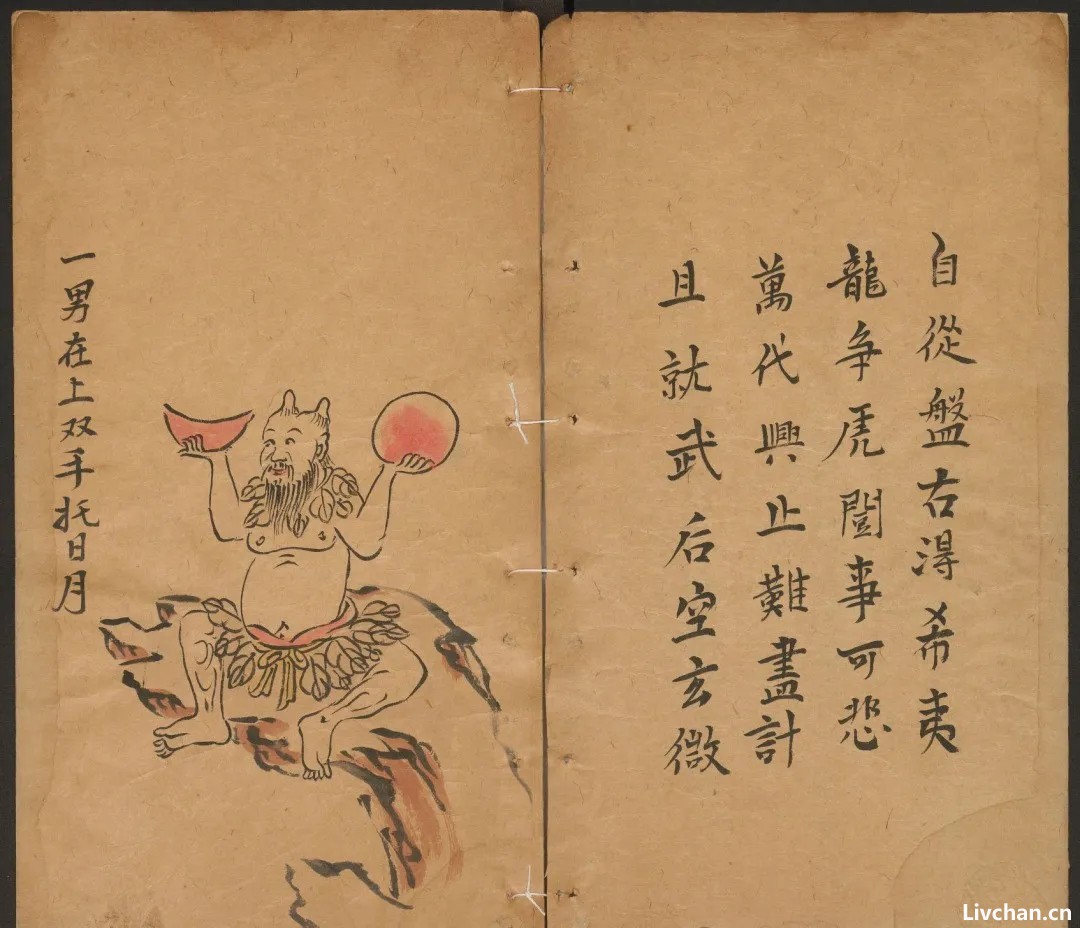 自從盤古淂希夷
龍争虎闘事可悲
萬代興止難盡計
且就武后空玄微
一男在上双手托日月
Livchan.cn